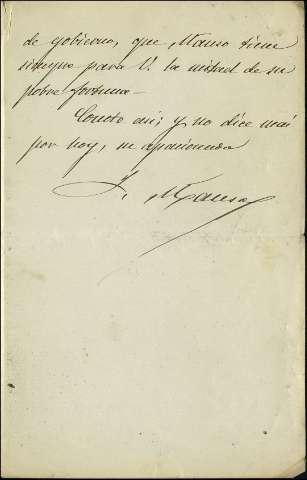 de gobierno, que Manso tiene
siempre para V. la mitad de su
pobre fortuna—
Conste asi; y no dice mas
por hoy, su apasionado
J. Manso